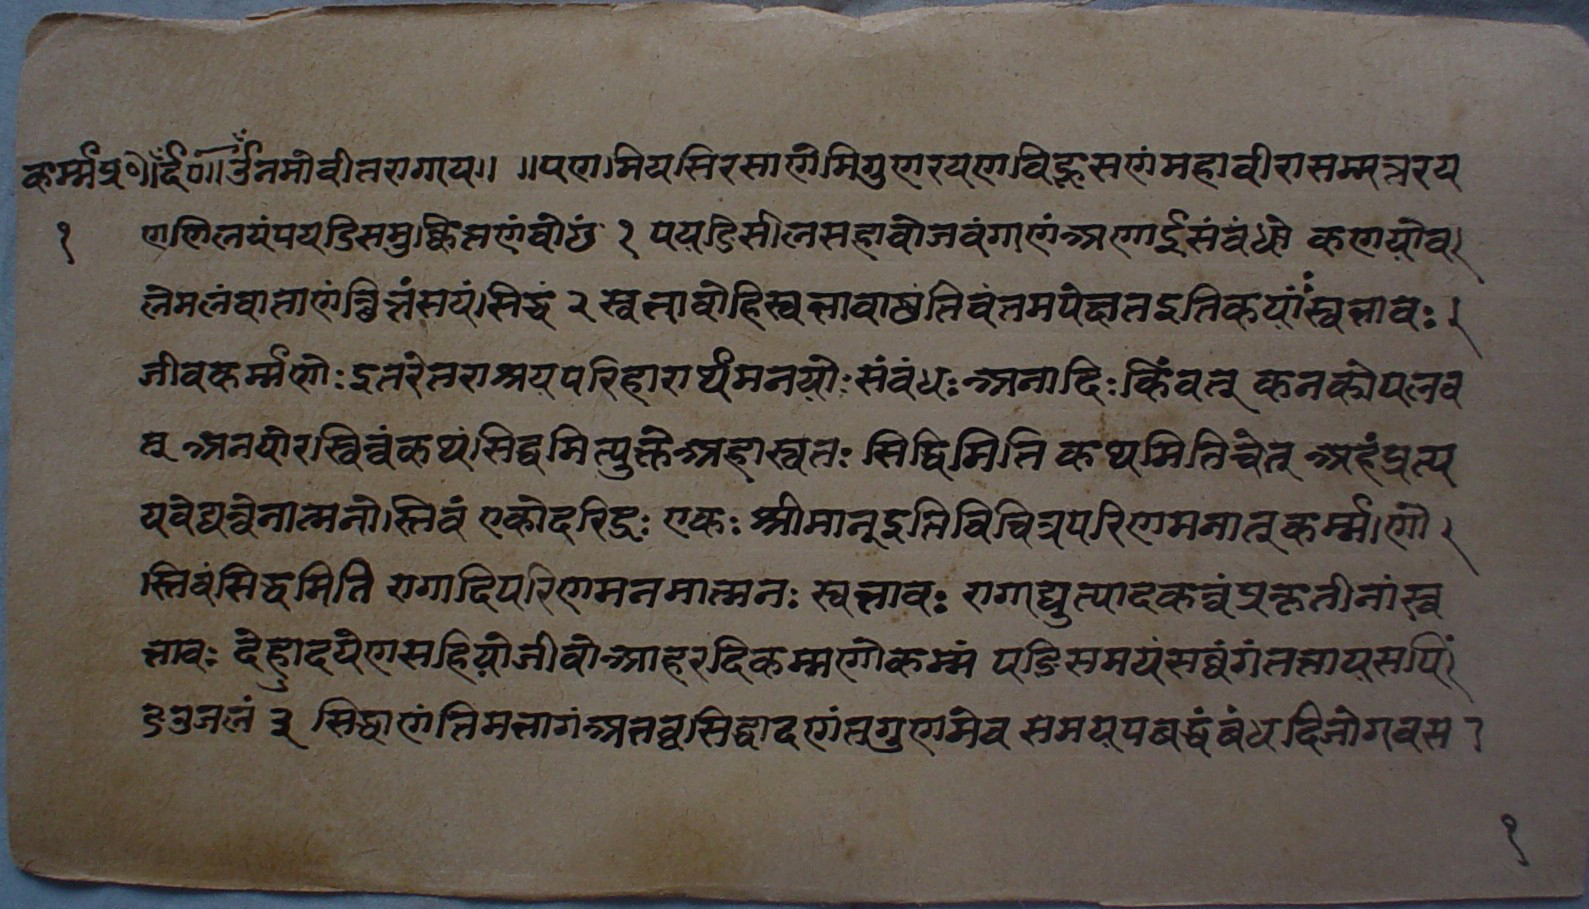 कर्म्मप्र०॥र्द०॥ॐनमोवीतरागाय॥ ॥पणमियसिरसाणेमिगुणरयणविहूसणंमहावीरासम्मत्तरय
१ णणिलयंपयडिसमुक्कित्तणंवोछं १ पयडिसीलसहावोजवंगाणंअणाईसंबंधो कणयोव
लेमलंवाताणंछित्तंसयंसिद्धं २ स्वभावोहिस्वभाववांतंतिवंतमपेक्षतइतिकयोःस्वभावः
जीवकर्म्मणोः इतरेतराश्रयपरिहारार्थमनयोःसंबंधःअनादिःकिंवत् कनकोपलव
त् अनयोरस्तित्वंकथंसिद्धमित्युक्तेआहास्वतः सिद्धिमिति कथमितिचेत् अहंप्रत्य
यवेद्यत्वेनात्मनोस्तित्वं एकोदरिद्रः एकः श्रीमान्इतिविचित्रपरिणमनात्कर्म्मणो
स्तित्वंसिद्धमिति रागादिपरिणमनमात्मनः स्वभावः रागाद्युत्पादकत्वंप्रकृतीनांस्व
भावः देहोदयेणसहियोजीवोआहरदिकम्मणोकम्मं पडिसमयंसव्वंगंतत्तायसपिं
डवुजलं ३ सिद्धाणंतिमभागंअभव्वसिद्धादणंतगुणमेव समयपबद्धंबंधदिजोगवस
१